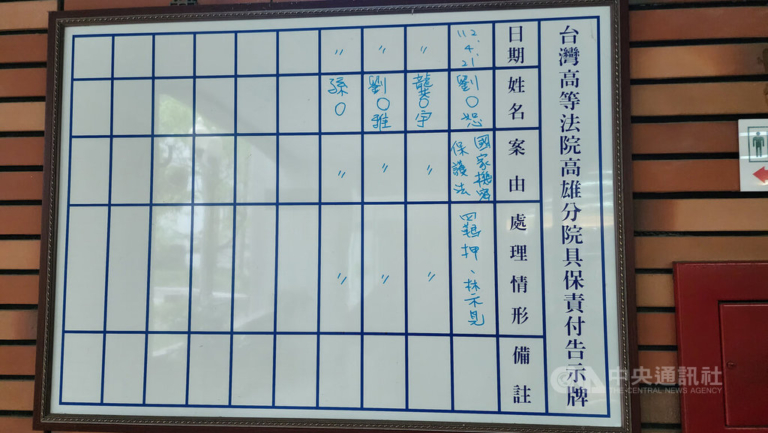 台灣高等法院高雄分院具保責付告示牌
日期 姓名 案由 處理情形 備註
112.4.21 劉○恕 國家機密保護法 羈押、禁見
〃 龔○宇 〃 〃
〃 劉○雅 〃 〃
〃 孫○ 〃 〃
中央通訊社
THE CENTRAL NEWS AGENCY